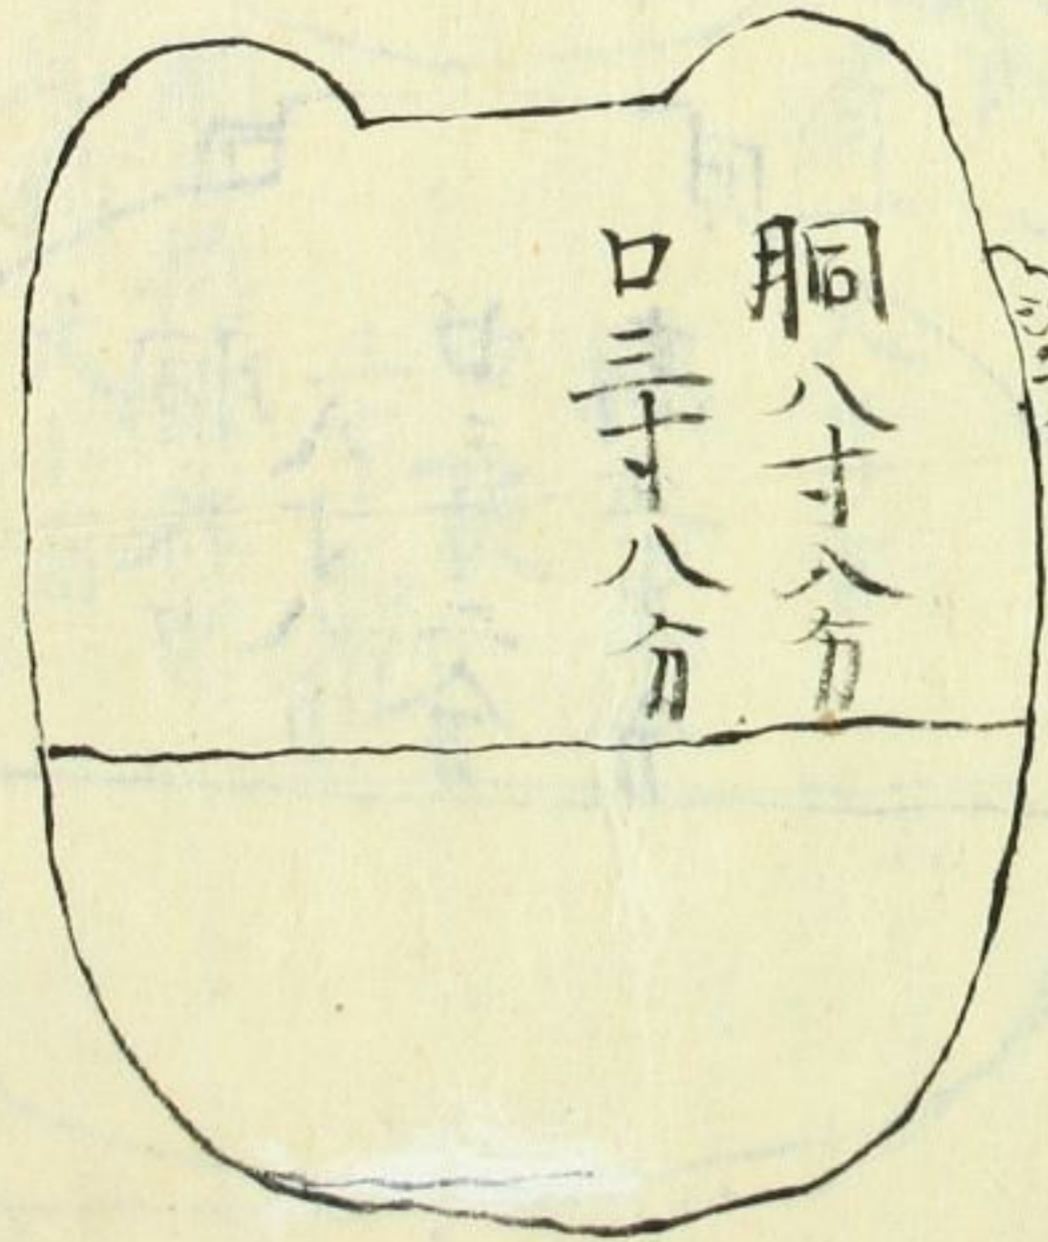 胴八寸八分
口三寸八分